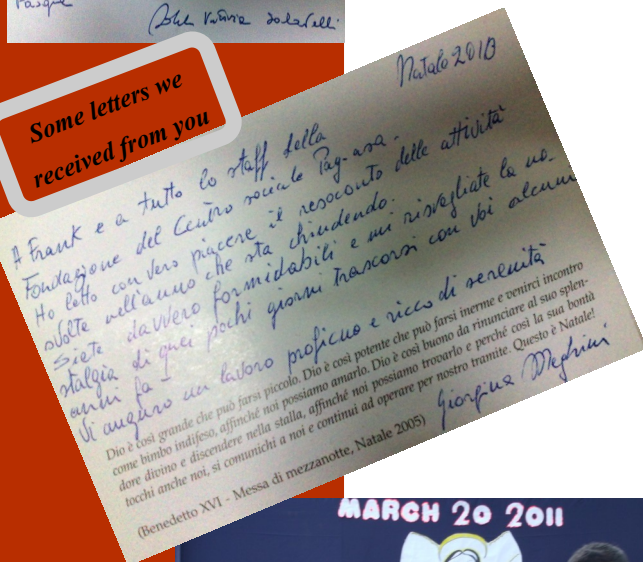 Pasqua
Some letters we
received from you
Natale 2010
A Frank e a tutto lo staff della
Fondazione del Centro sociale Pag-asa.
Ho letto con vero piacere il resoconto delle attività
svolte nell'anno che sta chiudendo.
Siete davvero formidabili e mi risvegliate la no-
stalgia di quei pochi giorni trascorsi con voi alcuni
anni fa.
Vi auguro un lavoro proficuo e ricco di serenità
Dio è così grande che può farsi piccolo. Dio è così potente che può farsi inerme e venirci incontro
come bimbo indifeso, affinché noi possiamo amarlo. Dio è così buono da rinunciare al suo splen-
dore divino e discendere nella stalla, affinché noi possiamo trovarlo e perché così la sua bontà
tocchi anche noi, si comunichi a noi e continui ad operare per nostro tramite. Questo è Natale!
(Benedetto XVI - Messa di mezzanotte, Natale 2005)
Giorgina
MARCH 20 2011